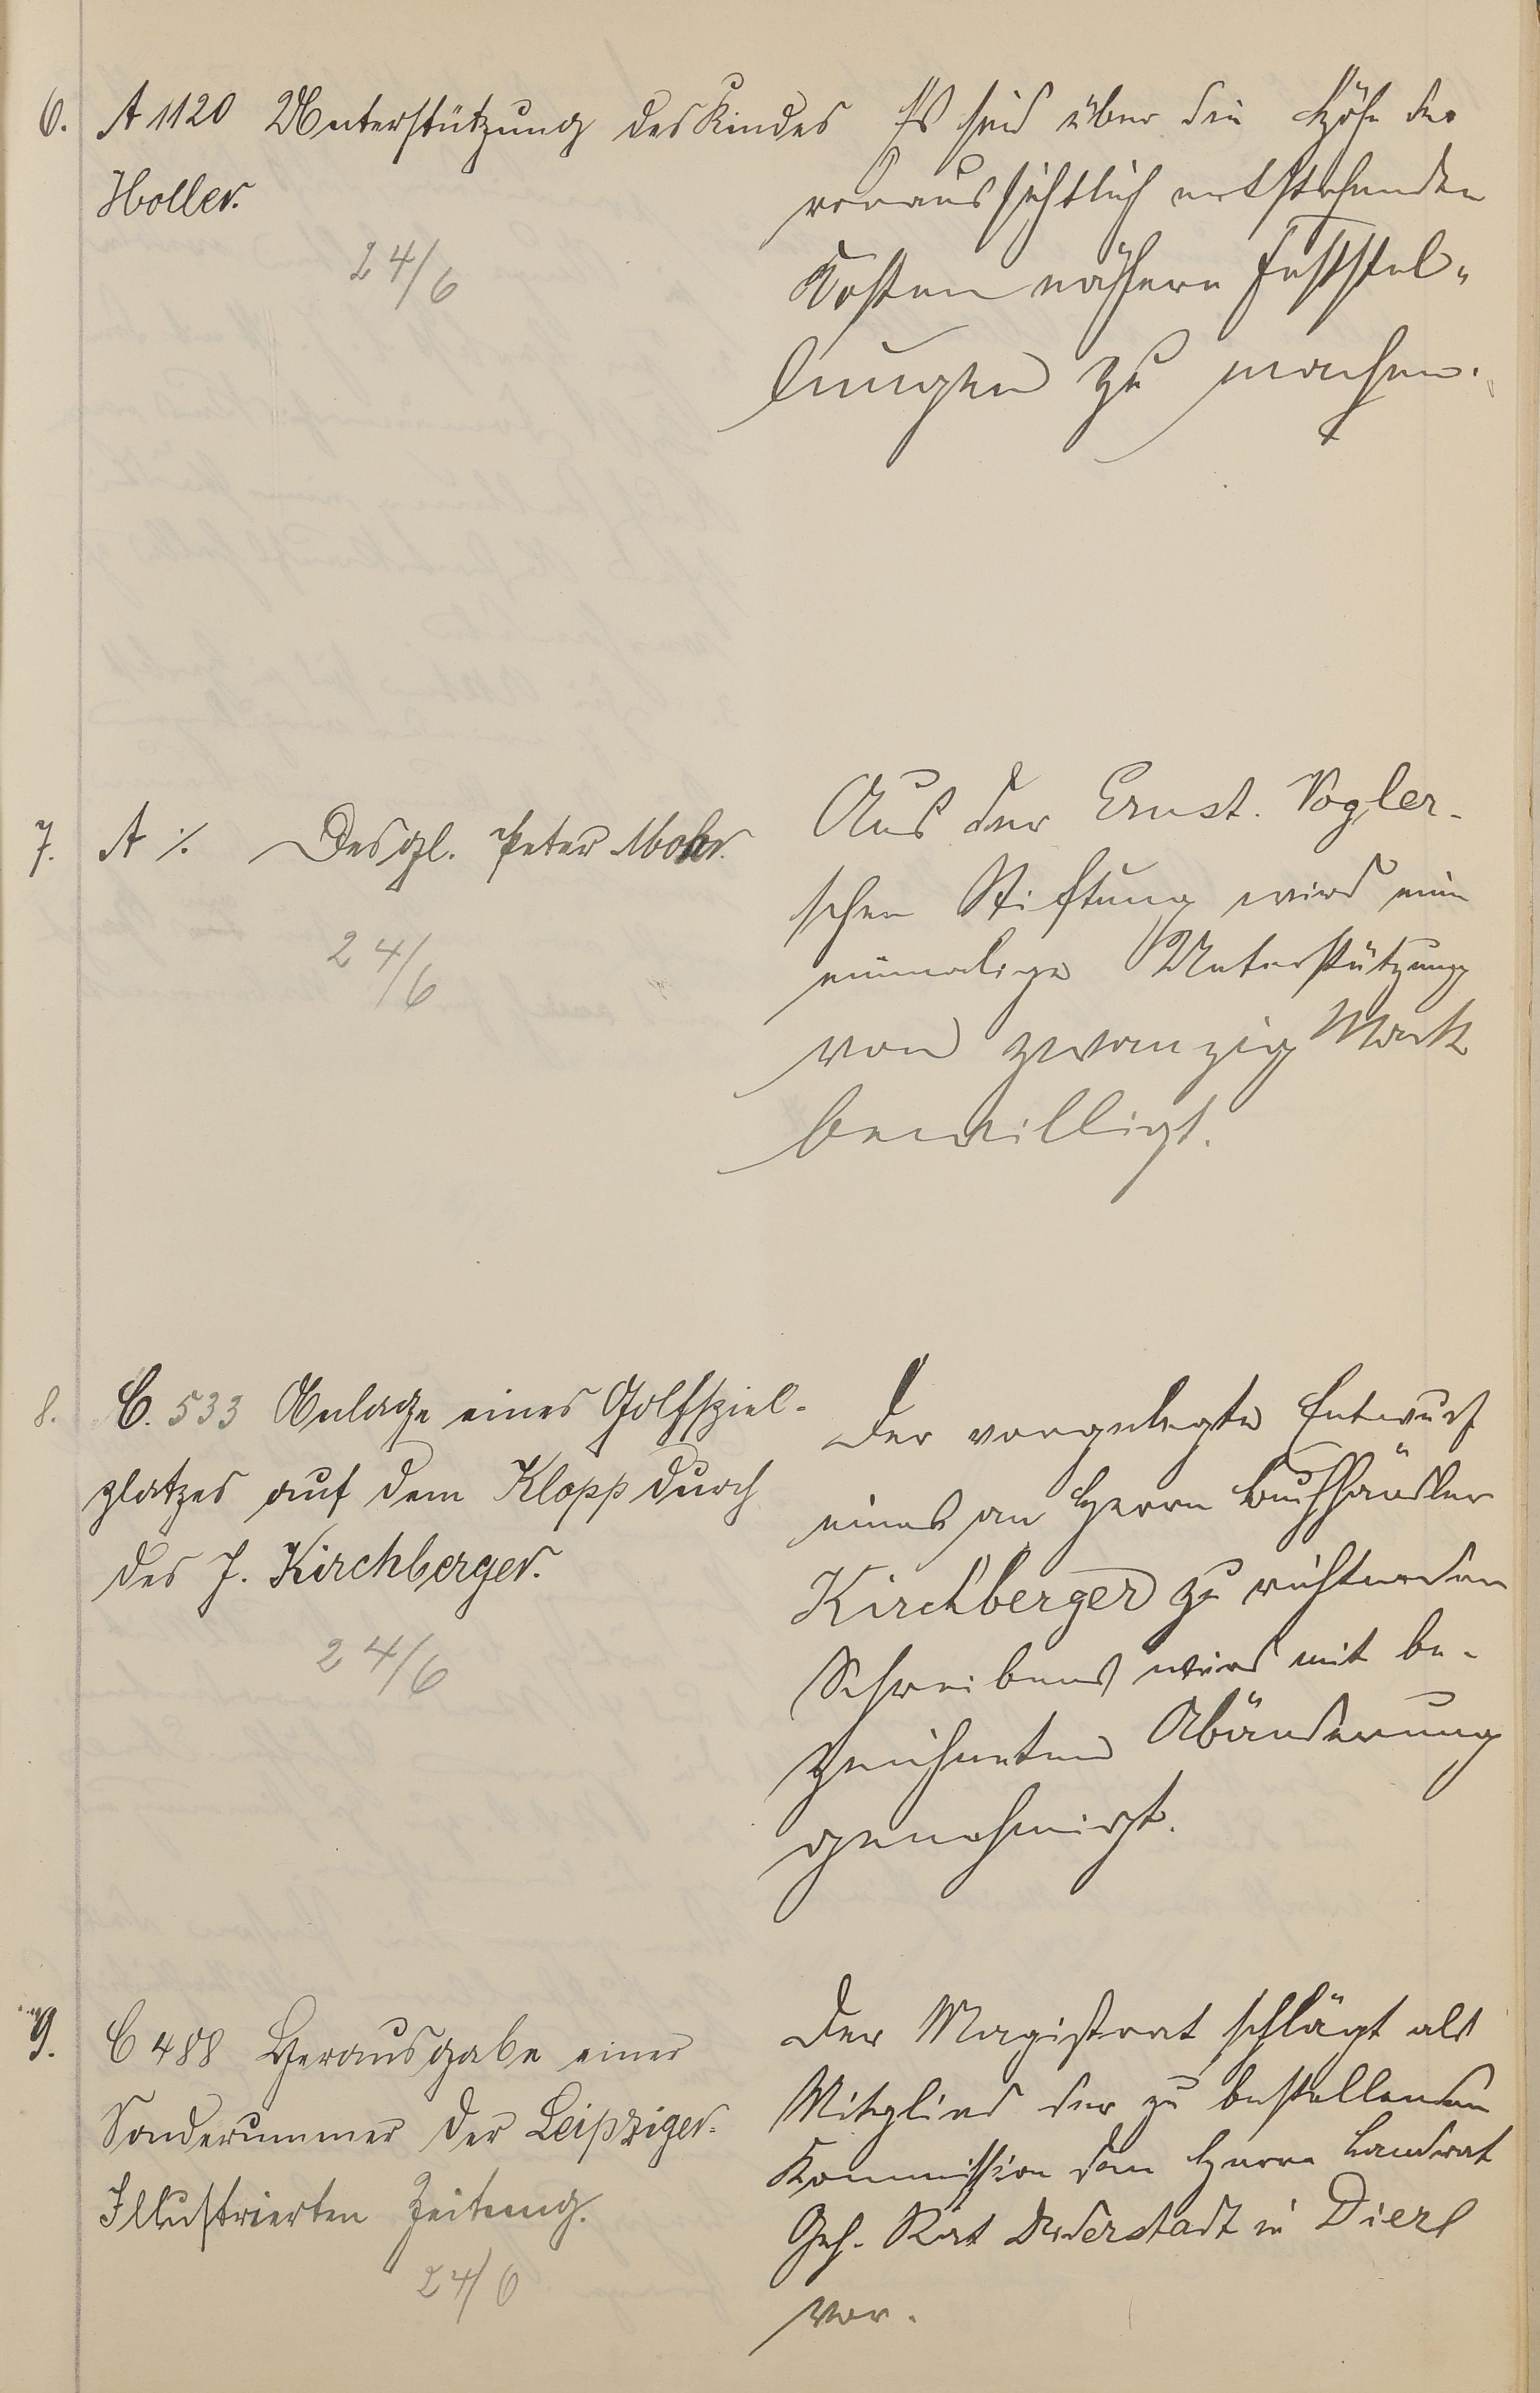 6. A 1120 Unterstützung des Kindes
Holler.
24/6
Es sind über die Höhe der
voraussichtlich entstehenden
Kosten nähere Feststel-
lungen zu machen.
7. A ./. Desgl. Peter Mohr.
24/6
Aus der Ernst. Vogler-
schen Stiftung wird eine
einmalige Unterstützung
von zwanzig Mark
bewilligt.
8. C. 533 Anlage eines Golfspiel-
platzes auf dem Klopp durch
des J. Kirchberger.
24/6
Der vorgelegte Entwurf
eines an Herrn Buchhändler
Kirchberger zu richtenden
Schreibens wird mit be-
zeichneten Abänderung
genehmigt.
9. C 488 Herausgabe einer
Sondernummer der Leipziger-
Illustrierten Zeitung.
24/6
Der Magistrat schlägt als
Mitglied der zu bestellenden
Kommission den Herrn Landrat
Geh. Rat in
vor.